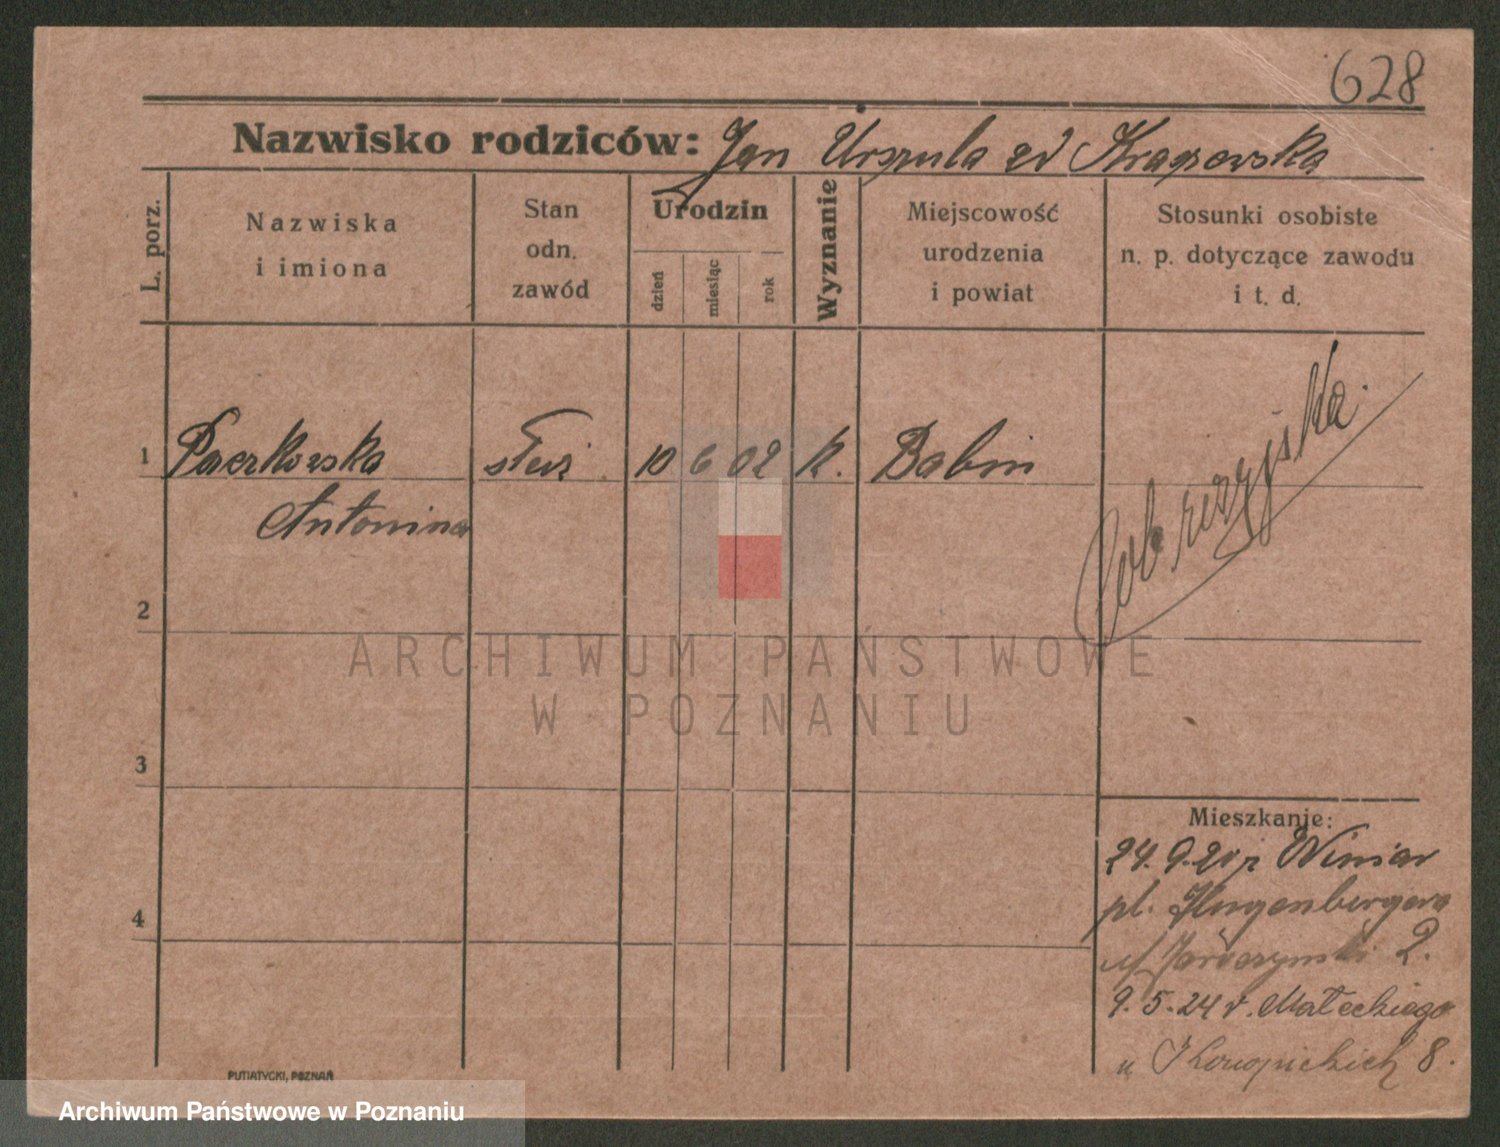 628
Nazwisko rodziców: Jan Urszula zd
L. porz.
Nazwiska
i imiona
Stan
odn.
zawód
Urodzin
dzień
miesiąc
rok
Wyznanie
Miejscowość
urodzenia
i powiat
Stosunki osobiste
n. p. dotyczące zawodu
i t. d.
1 Paczkowska służ 10 6 02 k. Babin
Antonina
2
3
4
Mieszkanie:
24. 9. Winiar
pl.
u/ 2.
9. 5. 24 Małeckiego
u 8.
PUTIATYCKI, POZNAŃ
ARCHIWUM PAŃSTWOWE
W POZNANIU
Archiwum Państwowe w Poznaniu